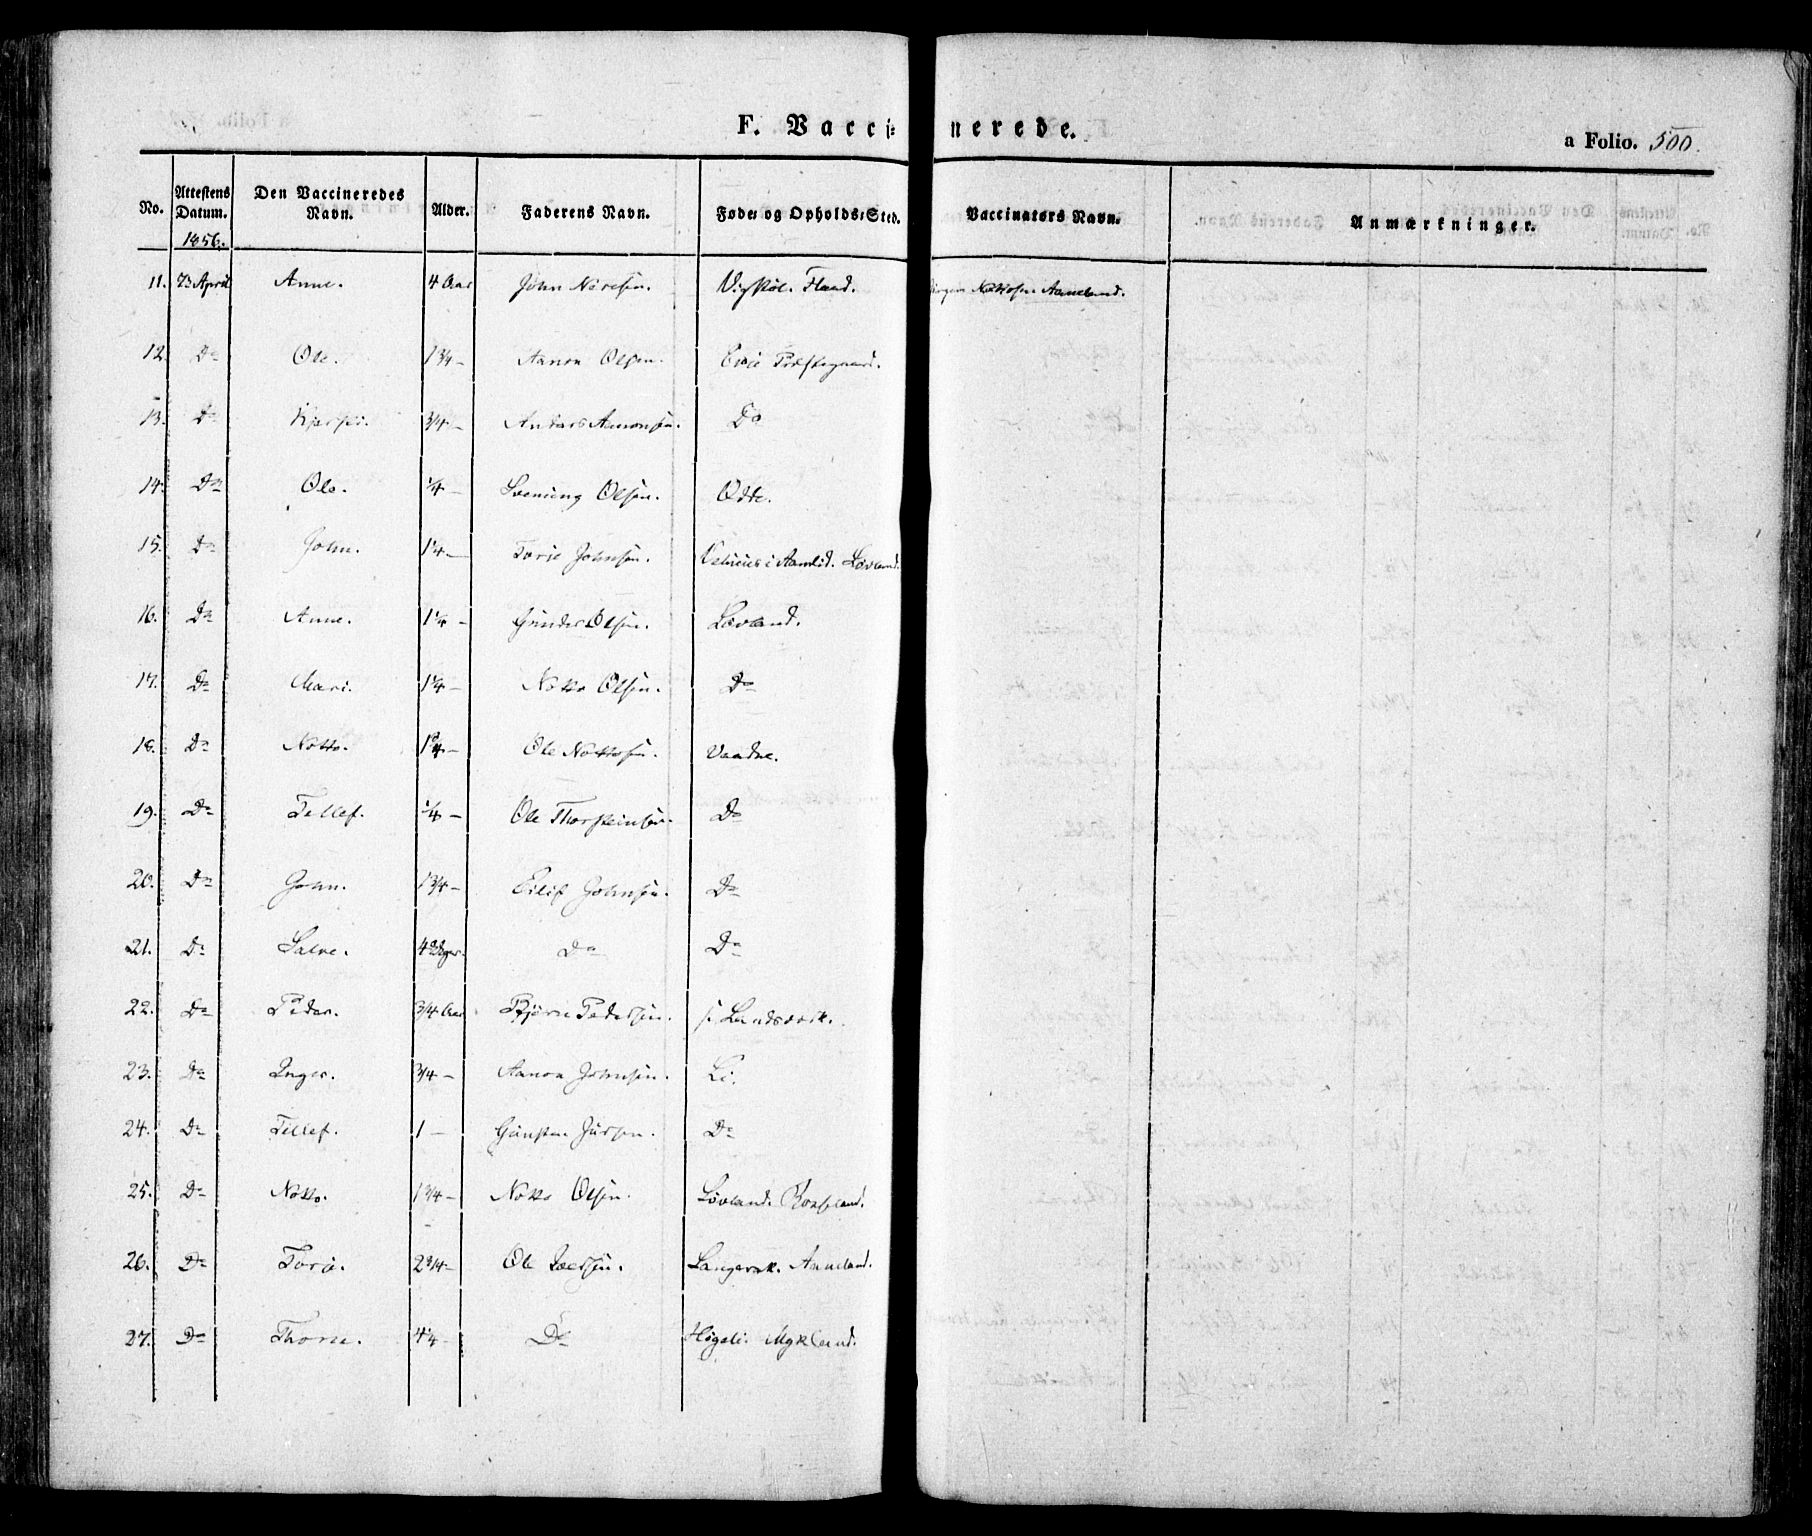 F. Vaccinerede.
a Folio. 500.
No. Attestens Datum. Den Vaccineredes Navn. Alder. Faderens Navn. Føde- og Opholds-Sted. Vaccinators Navn. Anmærkninger.
1856.
11. 23 April Anne. 4 Aar John Flaad. Aaneland.
12. Do Ole. 1 3/4 – Aanon Olsen. Evie Præstegaard.
13. Do 3/4 – Anders Aanonsen. Do
14. Do Ole. 1/4 – Olsen. Odde.
15. Do John. 1 1/4 – Torje Johnsen. Løvland.
16. Do Anne. 1 1/4 – Gunder Olsen. Løvland.
17. Do Mari. 1 1/4 – Notto Olsen. Do
18. Do Notto. – Ole Nottosen. Vaadne.
19. Do Tellef. 1/4 – Ole Thorsteinsen. Do
20. Do John. 1 3/4 – Eilif Johnsen. Do
21. Do Salve. Do Do
22. Do Peder. 3/4 Aar Bjørn Pedersen.
23. Do Inger. 3/4 – Aanon Johnsen. Li.
24. Do Tellef. 1 – Do
25. Do Notto. 1 3/4 – Notto Olsen. Løvland.
26. Do Torje. 2 3/4 – Ole Aaneland.
27. Do Thorn. Do Høgeli. Mykland.